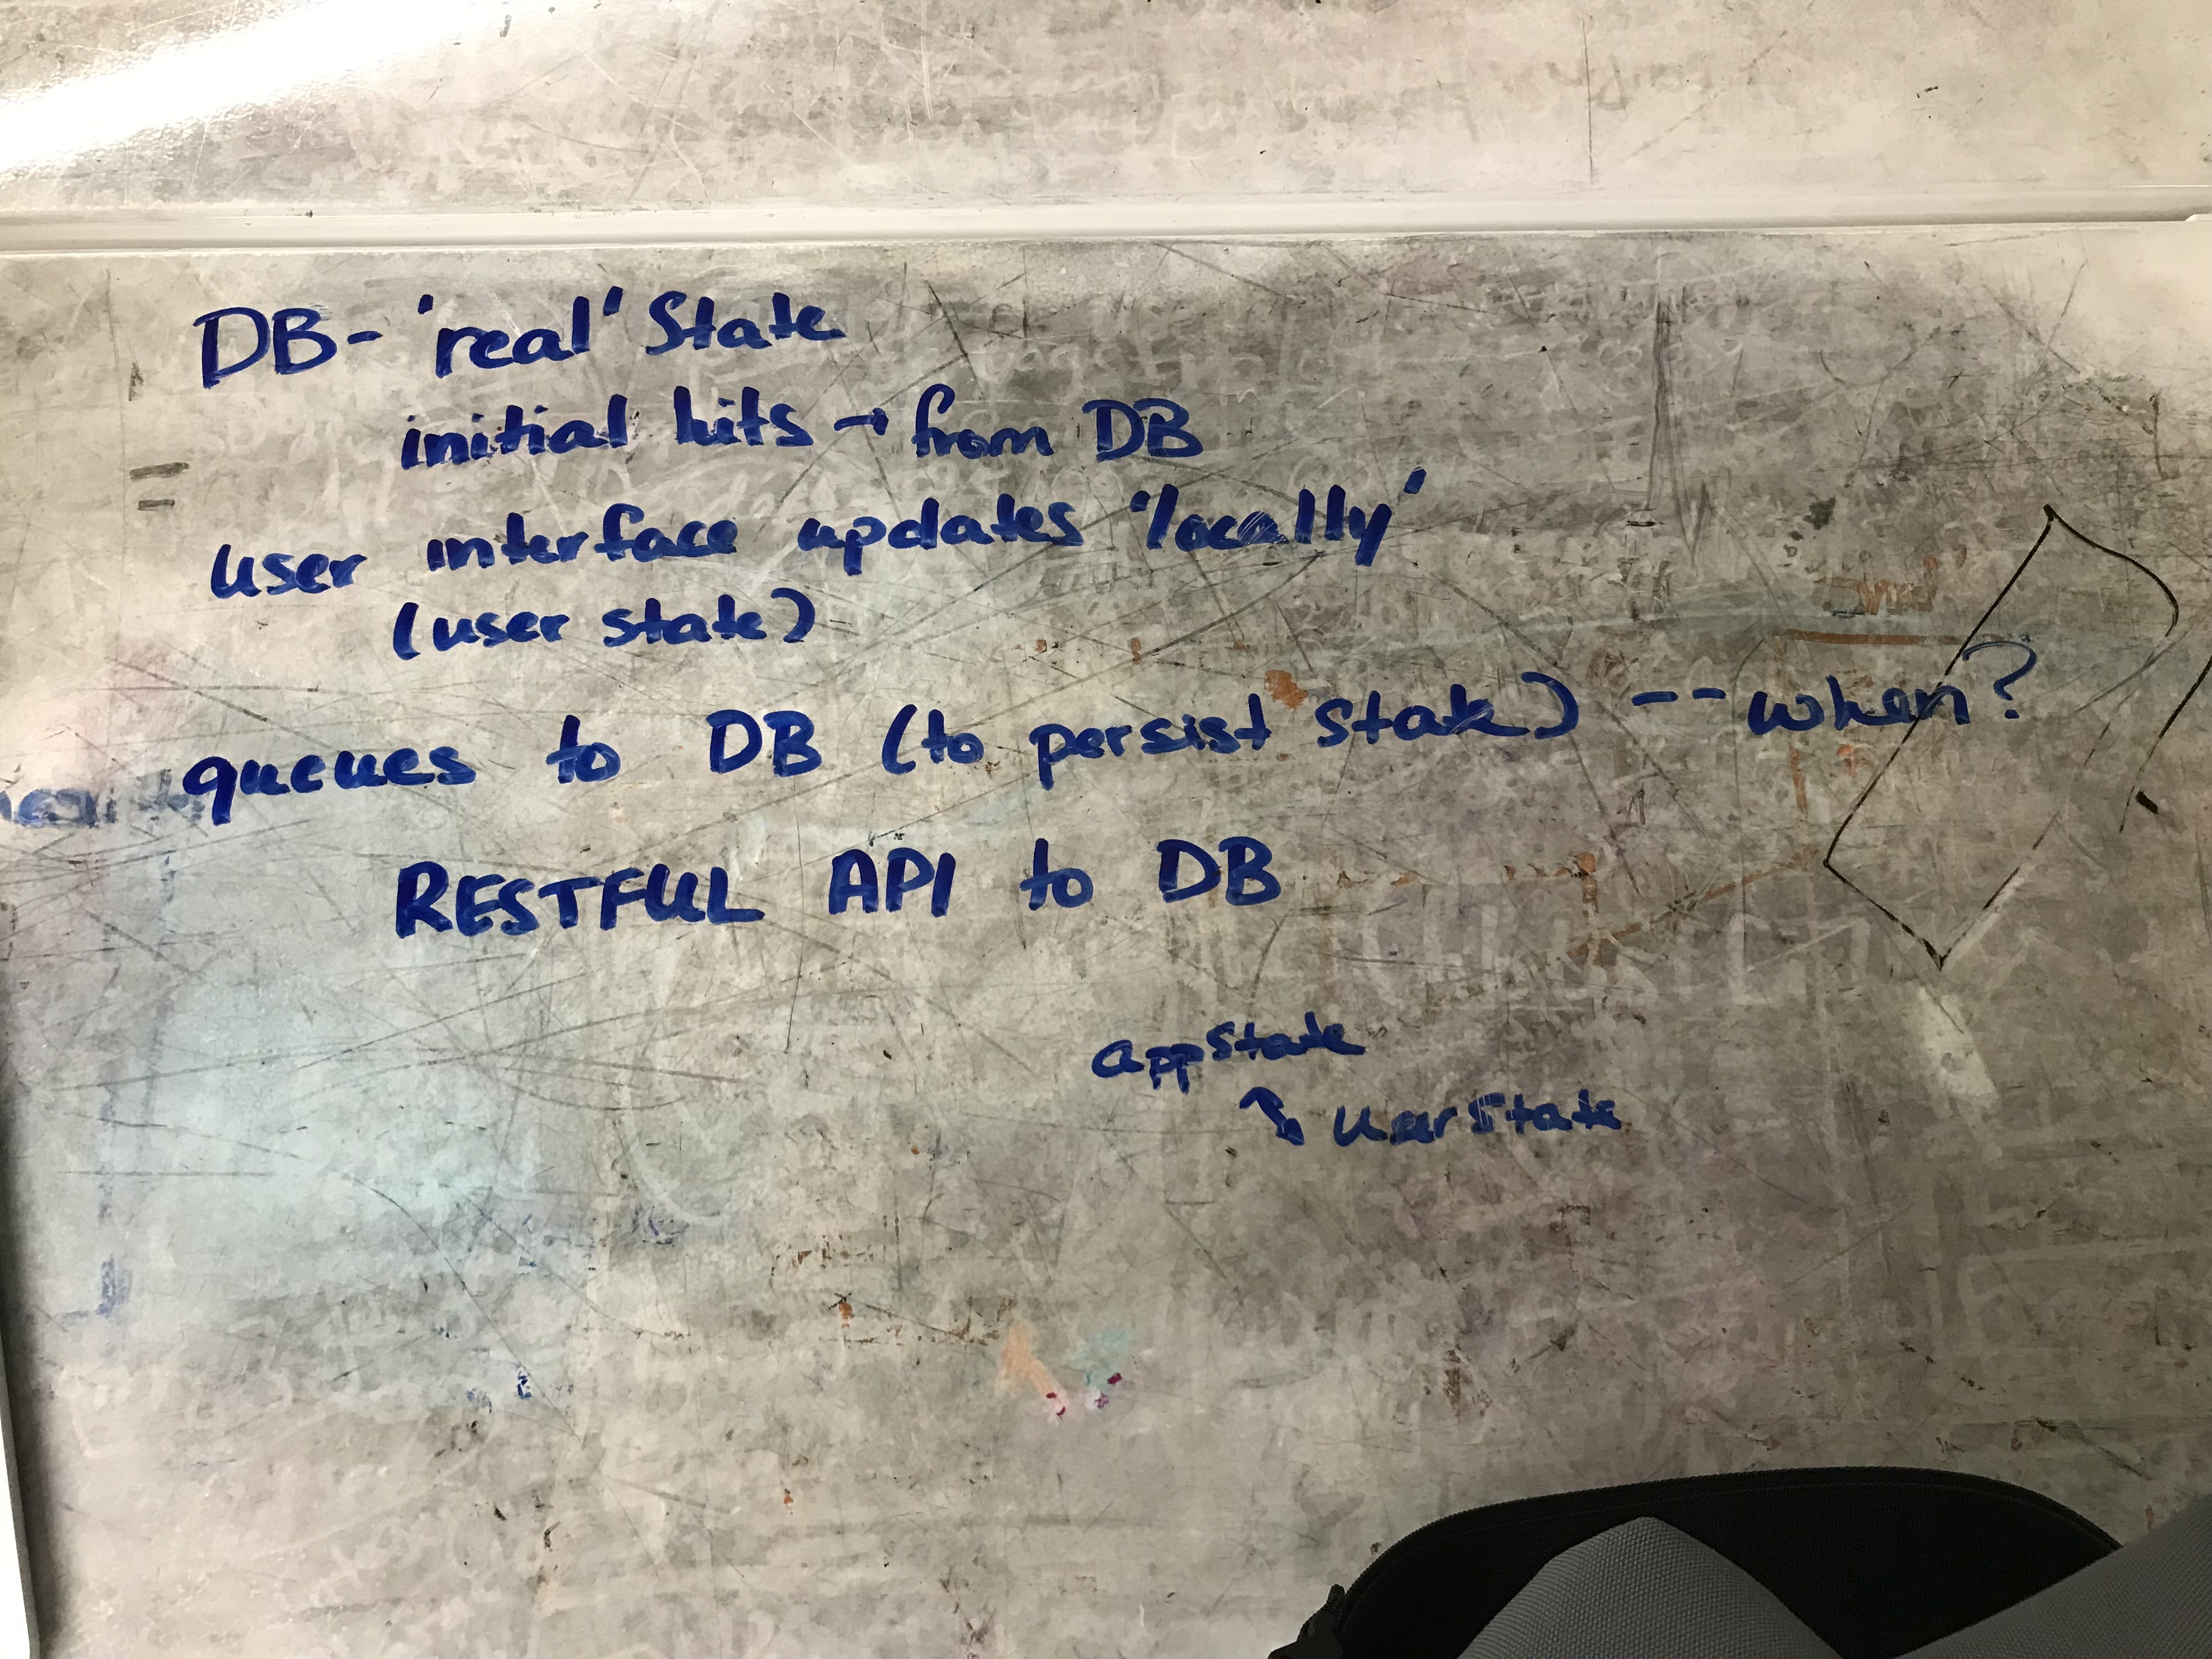 DB- 'real' State
initial hits → from DB
user interface updates 'locally'
(user state)
queues to DB (to persist state) -- when?
RESTFUL API to DB
appState
userState